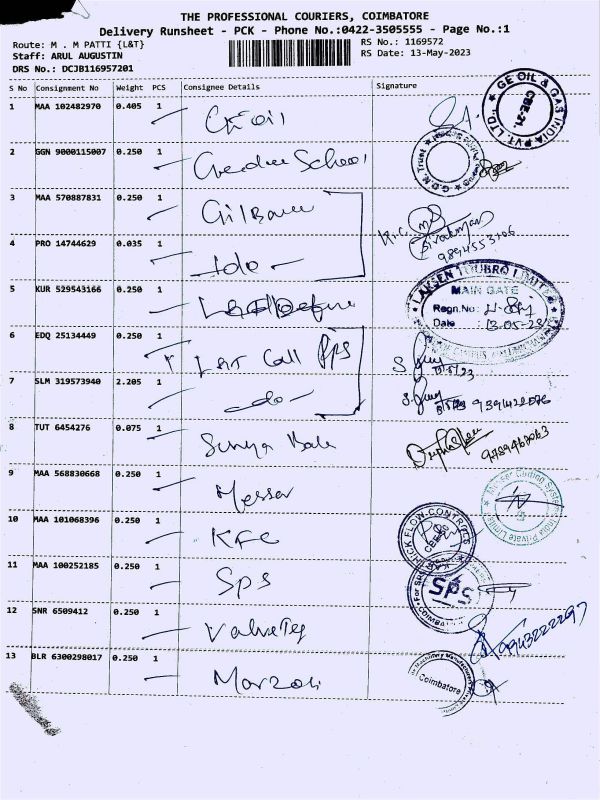 THE PROFESSIONAL COURIERS, COIMBATORE
Delivery Runsheet - PCK - Phone No.:0422-3505555 - Page No.:1
Route: M . M PATTI {L&T}
RS No.: 1169572
Staff: ARUL AUGUSTIN
RS Date: 13-May-2023
DRS No.: DCJB116957201
S No Consignment No Weight PCS Consignee Details Signature
1 MAA 102482970 0.405 1 GE oil
GE OIL & GAS INDIA PVT. LTD. CBE-21.
2 GGN 9000115007 0.250 1 School
G.D.M. Trust
3 MAA 570887831 0.250 1
4 PRO 14744629 0.035 1 - do -
9894553106
5 KUR 529543166 0.250 1 L&T Defence
LARSEN TOUBRO LIMITED
MAIN GATE
Regn.No:
Date : 13-05-23
6 EDQ 25134449 0.250 1 L&T Call
7 SLM 319573940 2.205 1 - do -
8 TUT 6454276 0.075 1 Surya Bala
9 MAA 568830668 0.250 1 Messer
Messer Cutting Systems India Private Limited
10 MAA 101068396 0.250 1 KFC
FLOW-CONTROLS
11 MAA 100252185 0.250 1 Sps
Sps
12 SNR 6509412 0.250 1
9943222297
13 BLR 6300298017 0.250 1 Marzoli
Machinery Manufacturers
Coimbatore